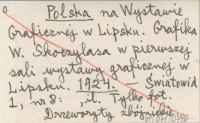 Polska na Wystawie
Graficznej w Lipsku. Grafika
W. Skoczylasa w pierwszej
sali wystawy graficznej w
Lipsku. 1927. — Światowid
1, nr 8: , il. Tylko fot.
Drzeworyty zbójnickie